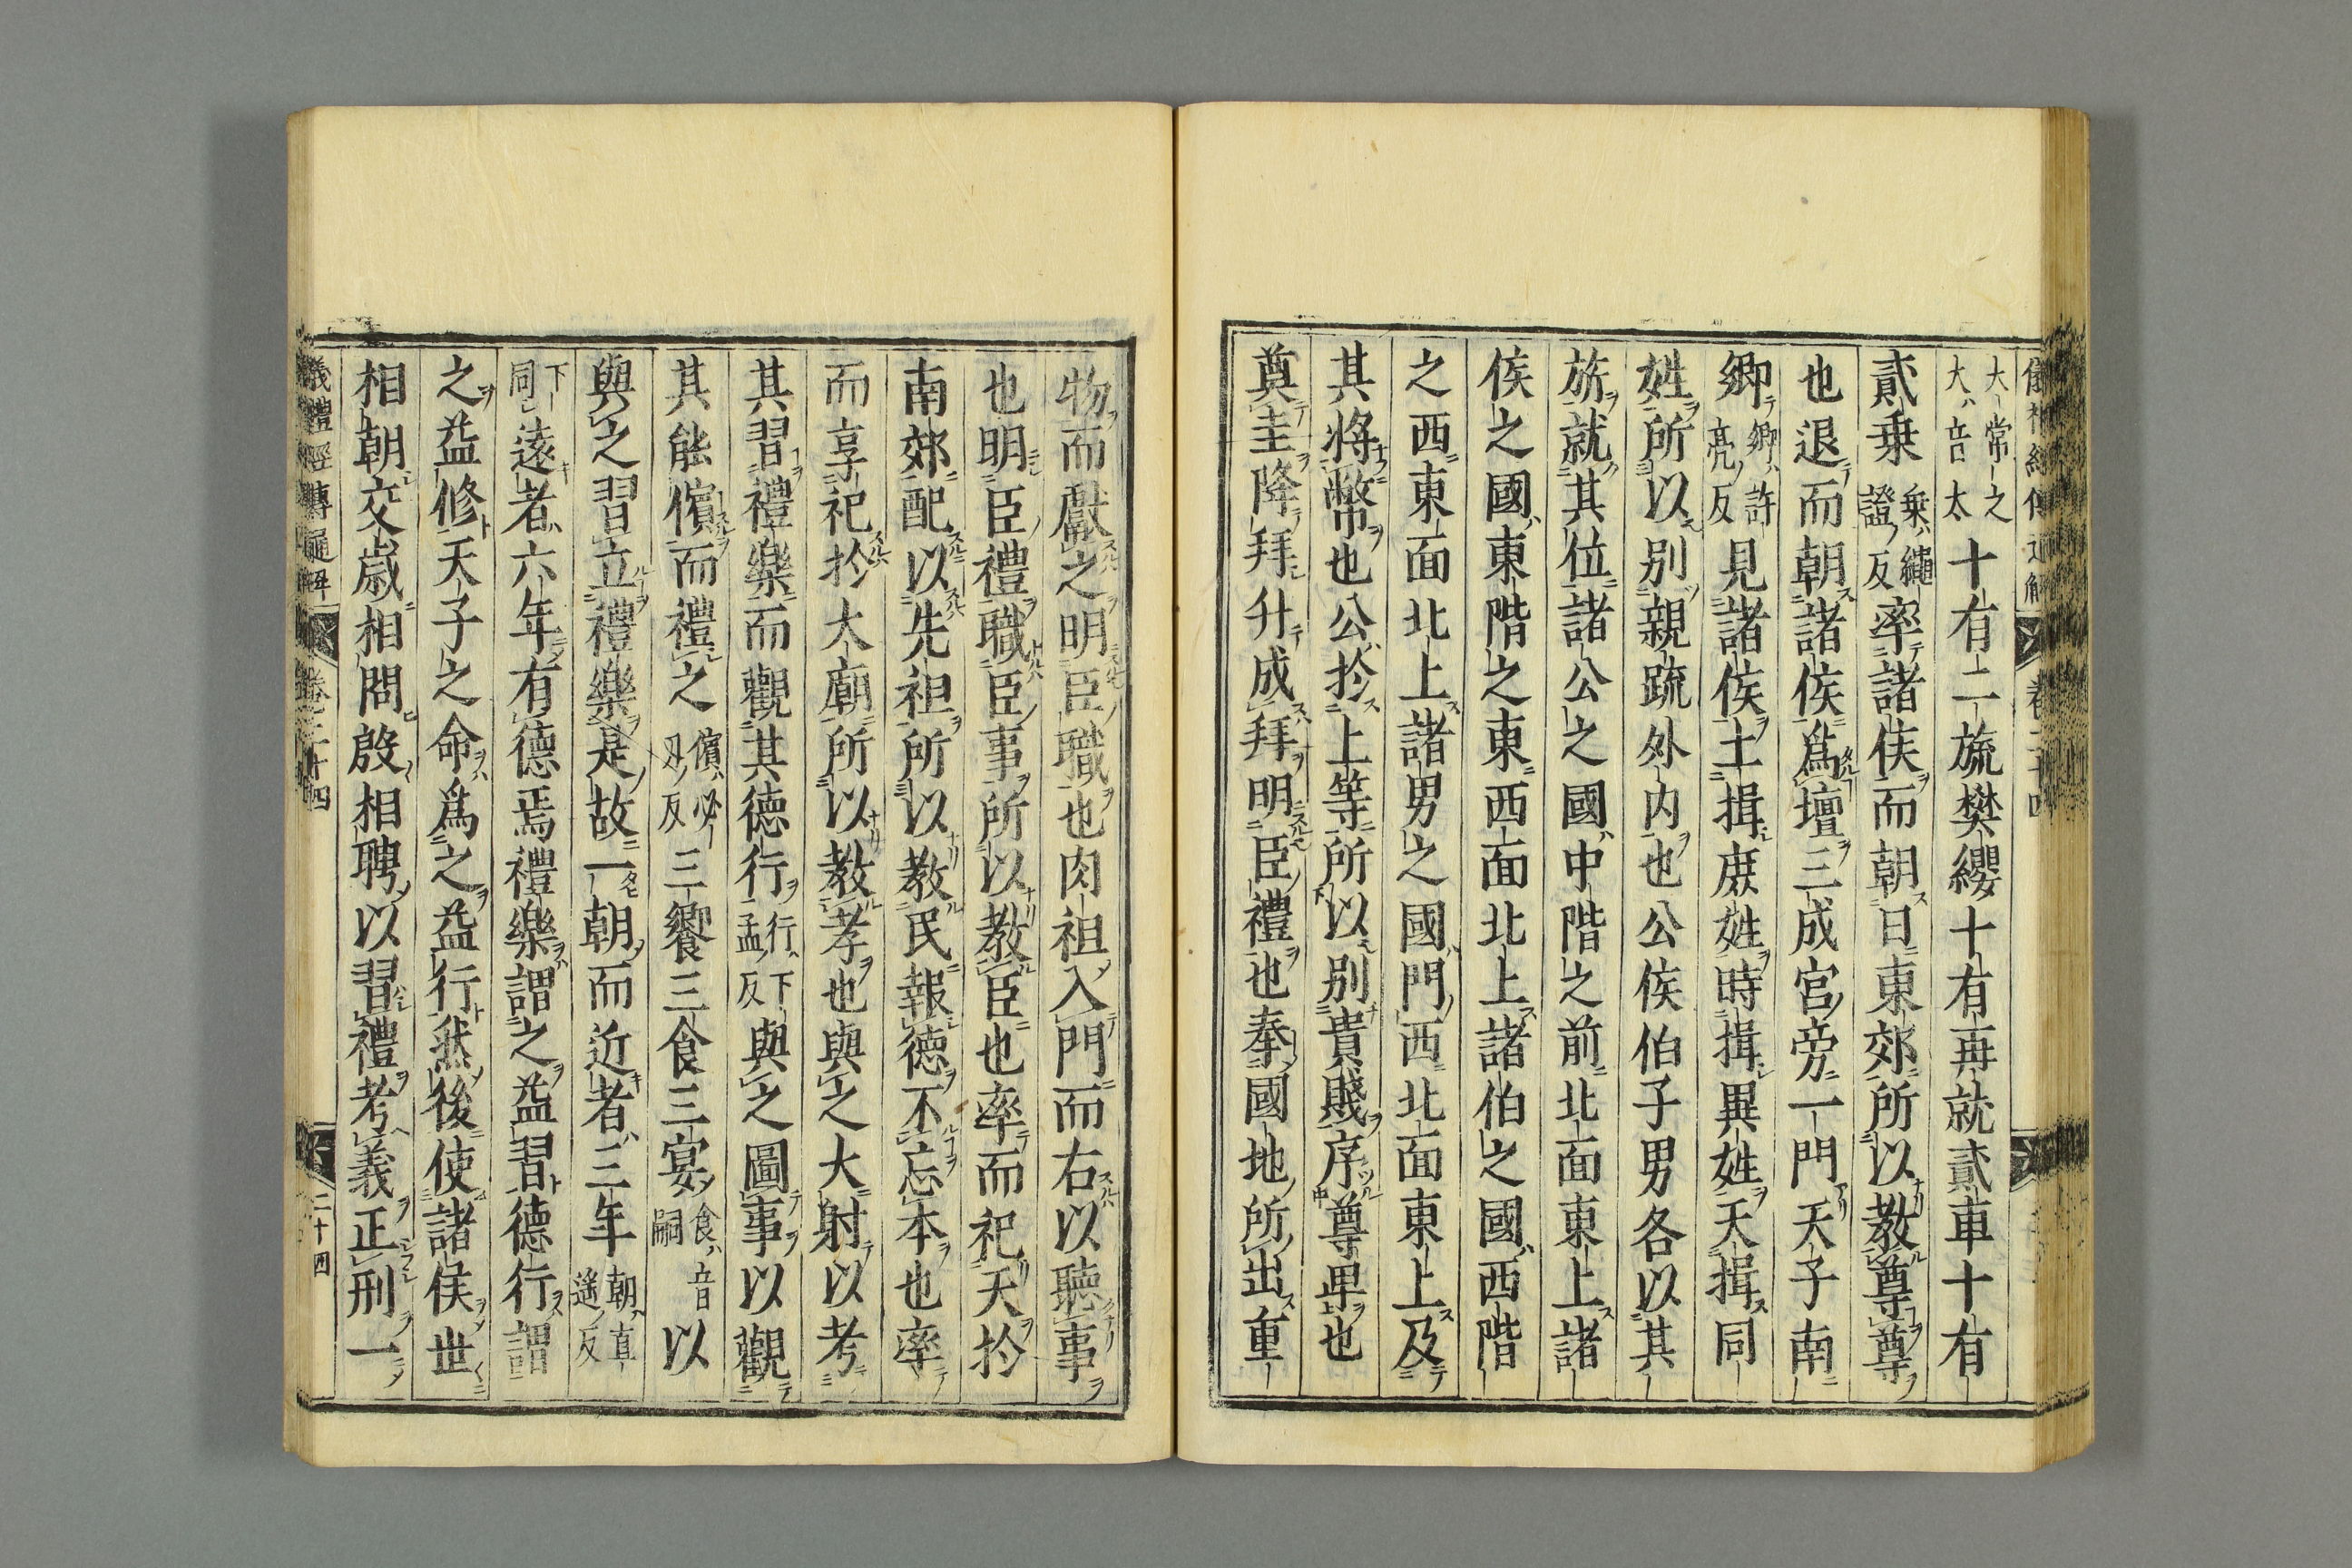 大常之
大音太
十有二旒樊纓十有再就貳車十有
貳乗
乗繩
證反
率諸侯而朝日東郊所以教尊尊
也退而朝諸侯爲壇三成宮旁一門天子南
鄉
鄉許
亮反
見諸侯土揖庶姓時揖異姓天揖同
姓所以别親䟽外内也公侯伯子男各以其
旂就其位諸公之國中階之前北面東上諸
侯之國東階之東西面北上諸伯之國西階
之西東面北上諸男之國門西北面東上及
其將幣也公扵上等所以别貴賤序尊卑也
奠圭降拜升成拜明臣禮也奉國地所出重
物而獻之明臣職也肉袒入門而右以聽事
也明臣禮職臣事所以教臣也率而祀天扵
南郊配以先祖所以教民報徳不忘本也率
而享祀扵大廟所以教孝也與之大射以考
其習禮樂而觀其徳行
行下
孟反
與之圖事以觀
其能儐而禮之
儐必
刃反
三饗三食三宴
食音
嗣
以
與之習立禮樂是故一朝而近者三年
朝直
遥反
下
同
遠者六年有徳焉禮樂謂之益習徳行謂
之益修天子之命爲之益行然後使諸侯世
相朝交歲相問殷相聘以習禮考義正刑一
儀禮經傳通解
卷二十四
二十四